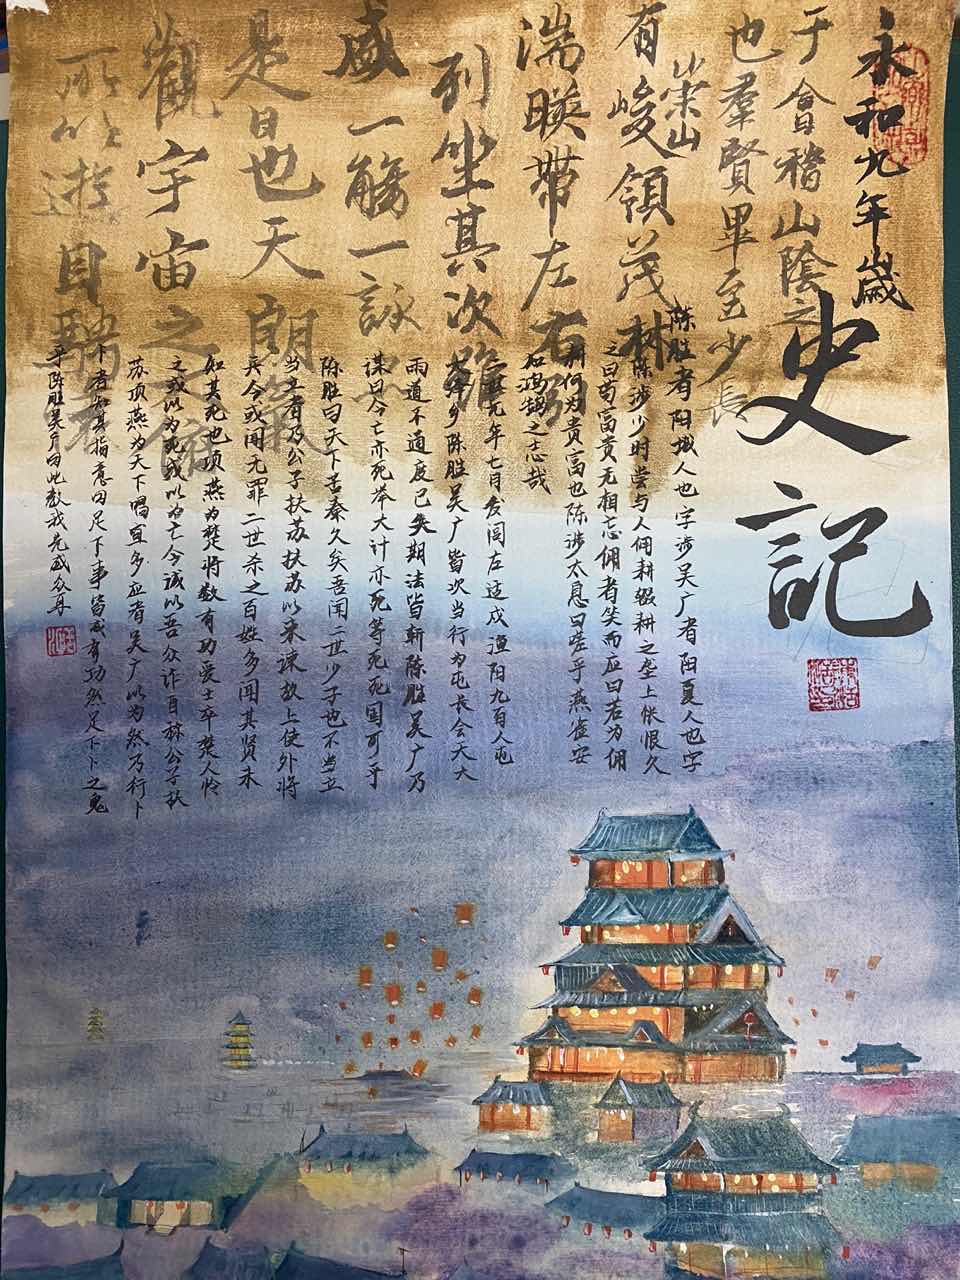 永和九年歲
于會稽山陰之
也羣賢畢至少長
崇山
有峻領茂林
湍暎帶左右
列坐其次雖
盛一觴一詠
是日也天朗氣
觀宇宙之
所以遊目騁
史記
陈胜者阳城人也字涉吴广者阳夏人也字
陈涉少时尝与人佣耕辍耕之垄上怅恨久
之曰苟富贵无相忘佣者笑而应曰若为佣
耕何为贵富也陈涉太息曰嗟乎燕雀安
知鸿鹄之志哉
二世元年七月发闾左适戍渔阳九百人屯
大泽乡陈胜吴广皆次当行为屯长会天大
雨道不通度已失期法皆斩陈胜吴广乃
谋曰今亡亦死举大计亦死等死死国可乎
陈胜曰天下苦秦久矣吾闻二世少子也不当立
当立者乃公子扶苏扶苏以来谏故上使外将
兵今或闻无罪二世杀之百姓多闻其贤未
如其死也项燕为楚将数有功爱士卒楚人怜
之或以为死或以为亡今诚以吾众诈自称公子扶
苏项燕为天下唱宜多应者吴广以为然乃行卜
卜者知其指意曰足下事皆成有功然足下卜之鬼
乎陈胜吴广曰此教我先威众耳